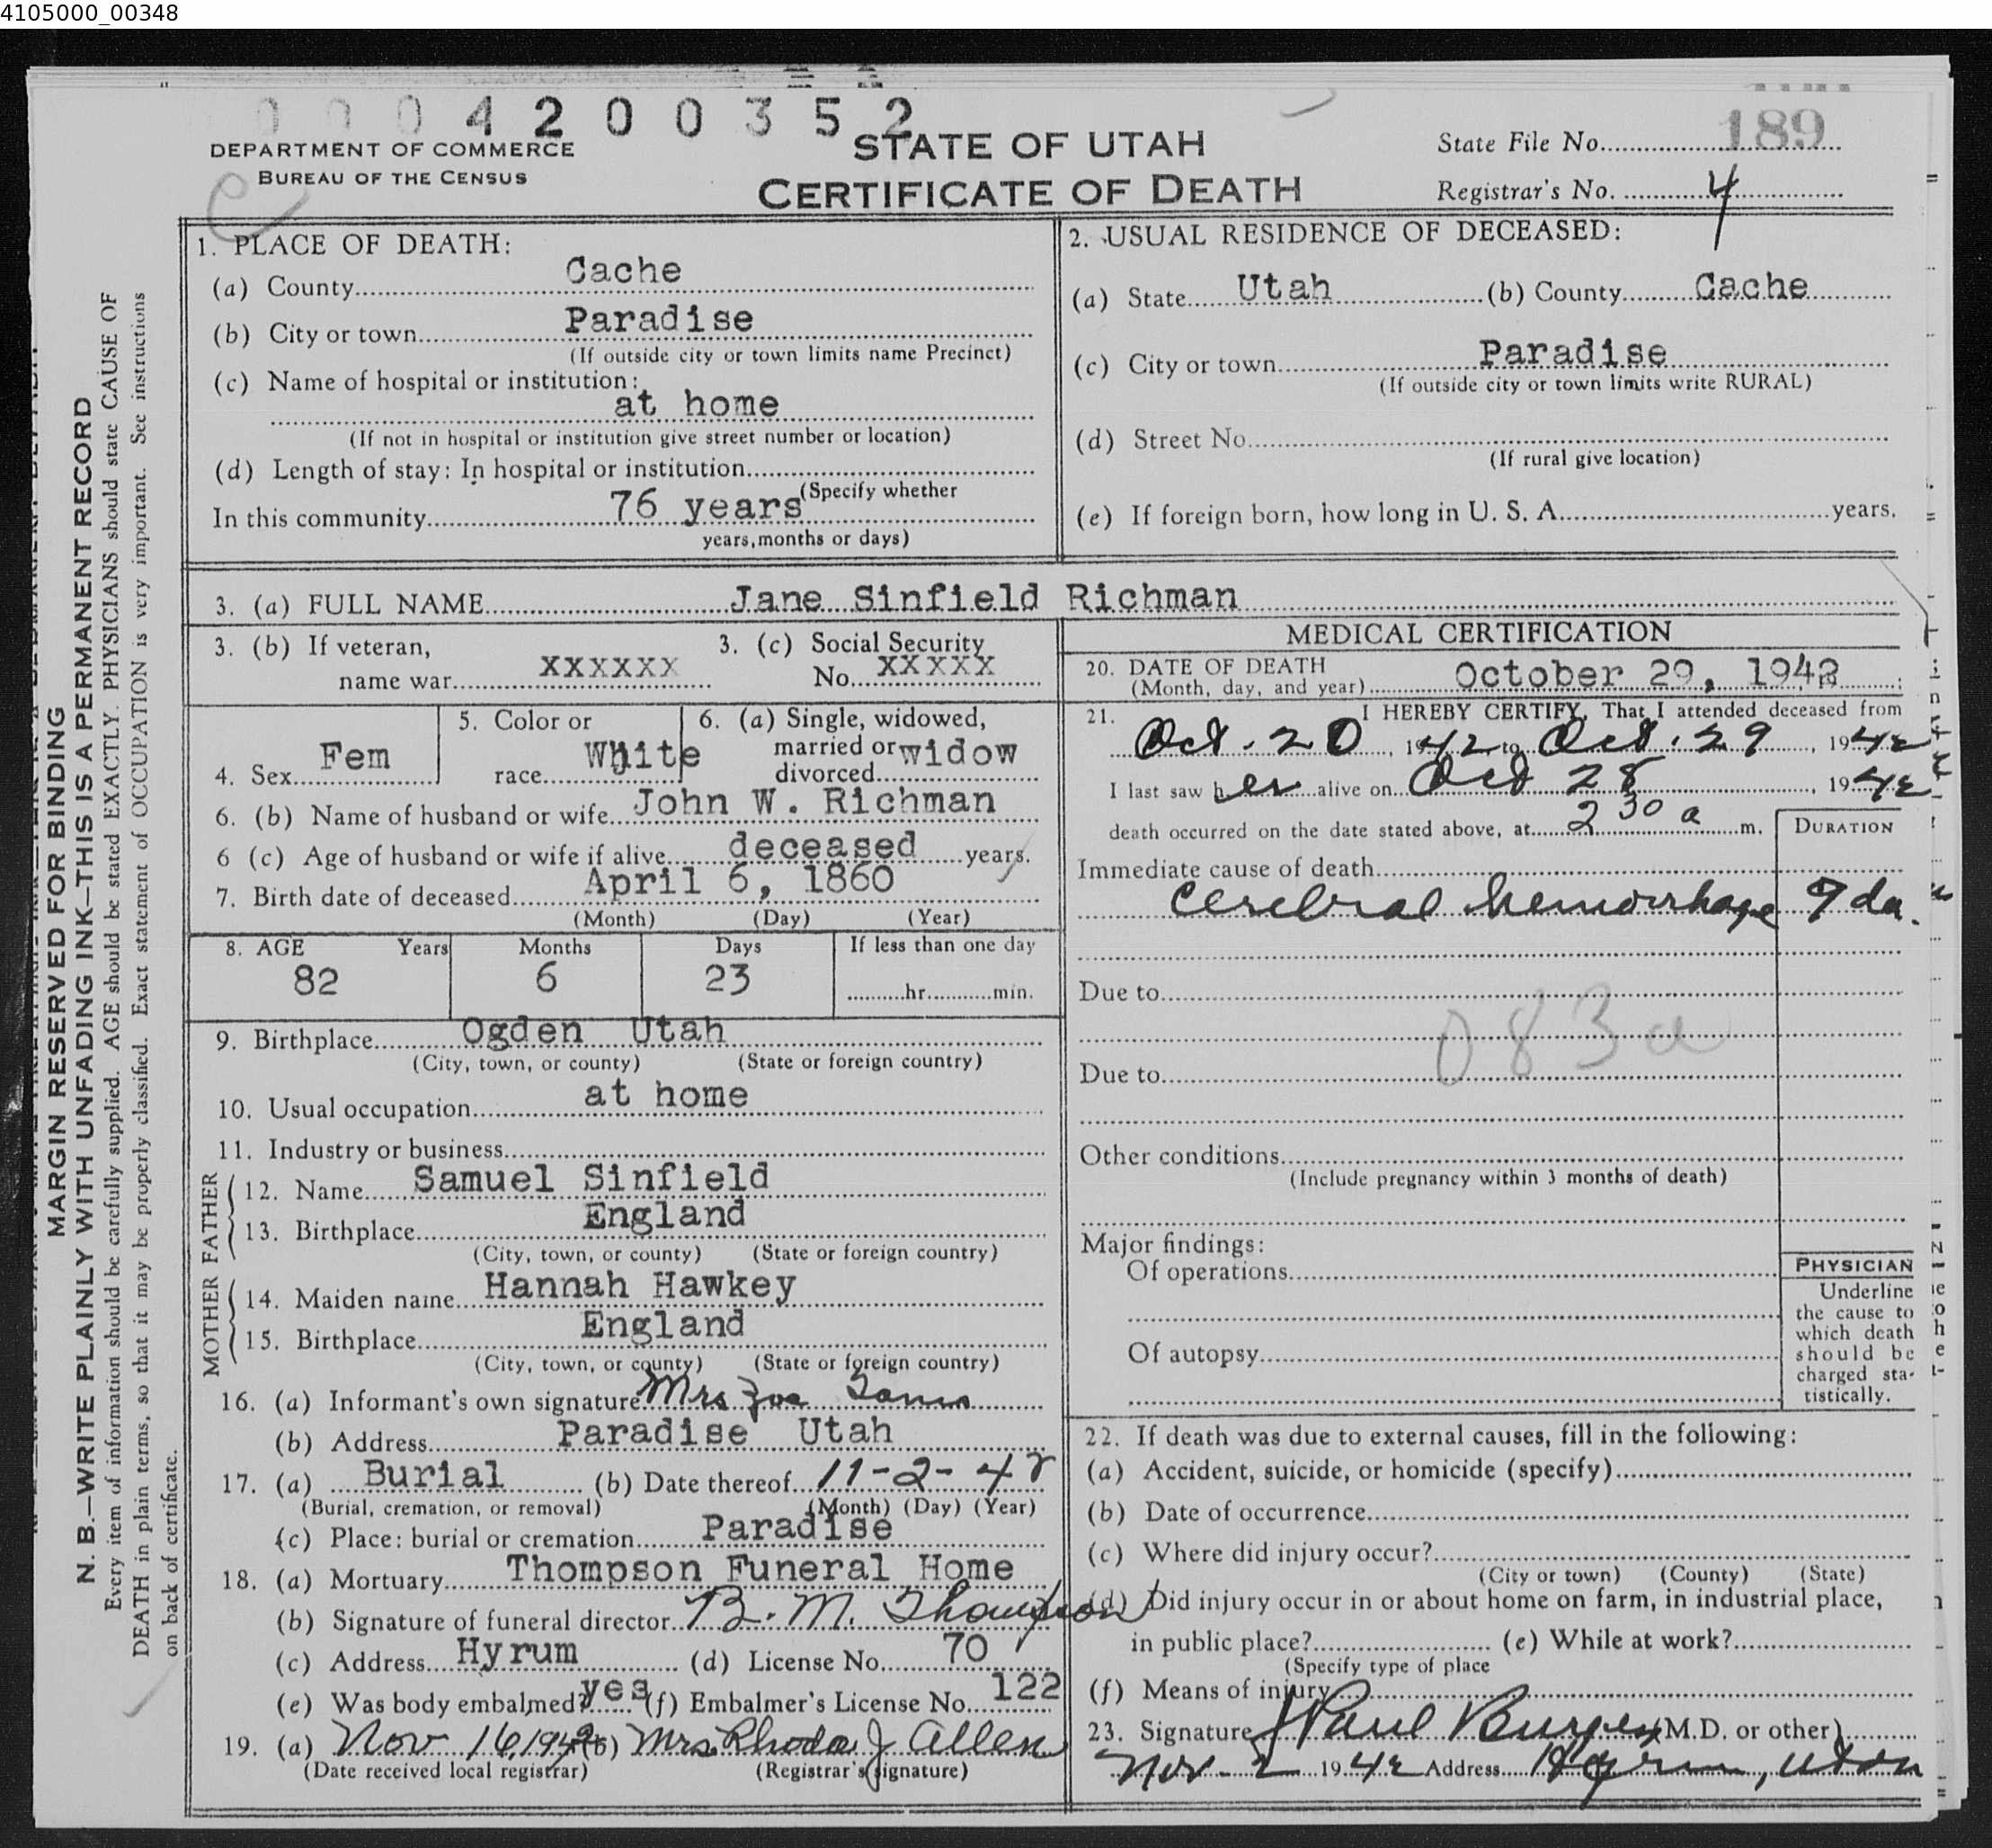 4105000_00348
0004200352
DEPARTMENT OF COMMERCE
BUREAU OF THE CENSUS
STATE OF UTAH
CERTIFICATE OF DEATH
State File No. 189
Registrar's No. 4
MARGIN RESERVED FOR BINDING
N. B.—WRITE PLAINLY WITH UNFADING INK—THIS IS A PERMANENT RECORD
Every item of information should be carefully supplied. AGE should be stated EXACTLY. PHYSICIANS should state CAUSE OF
DEATH in plain terms, so that it may be properly classified. Exact statement of OCCUPATION is very important. See instructions
on back of certificate.
1. PLACE OF DEATH:
(a) County Cache
(b) City or town Paradise
(If outside city or town limits name Precinct)
(c) Name of hospital or institution:
at home
(If not in hospital or institution give street number or location)
(d) Length of stay: In hospital or institution
(Specify whether
In this community 76 years
years, months or days)
2. USUAL RESIDENCE OF DECEASED:
(a) State Utah (b) County Cache
(c) City or town Paradise
(If outside city or town limits write RURAL)
(d) Street No.
(If rural give location)
(e) If foreign born, how long in U. S. A. years.
3. (a) FULL NAME Jane Sinfield Richman
3. (b) If veteran,
name war XXXXXX
3. (c) Social Security
No. XXXXX
4. Sex Fem
5. Color or
race White
6. (a) Single, widowed,
married or
divorced widow
6. (b) Name of husband or wife John W. Richman
6 (c) Age of husband or wife if alive deceased years.
7. Birth date of deceased April 6, 1860
(Month) (Day) (Year)
8. AGE Years Months Days If less than one day
82 6 23 hr. min.
9. Birthplace Ogden Utah
(City, town, or county) (State or foreign country)
10. Usual occupation at home
11. Industry or business
FATHER
12. Name Samuel Sinfield
13. Birthplace England
(City, town, or county) (State or foreign country)
MOTHER
14. Maiden name Hannah Hawkey
15. Birthplace England
(City, town, or county) (State or foreign country)
16. (a) Informant's own signature Mrs Zoa
(b) Address Paradise Utah
17. (a) Burial (b) Date thereof 11-2-42
(Burial, cremation, or removal) (Month) (Day) (Year)
(c) Place: burial or cremation Paradise
18. (a) Mortuary Thompson Funeral Home
(b) Signature of funeral director B. M. Thompson
(c) Address Hyrum (d) License No. 70
(e) Was body embalmed? yes (f) Embalmer's License No. 122
19. (a) Nov 16, 1942 (b) Mrs. Rhoda J Allen
(Date received local registrar) (Registrar's signature)
MEDICAL CERTIFICATION
20. DATE OF DEATH
(Month, day, and year) October 29, 1942
21. I HEREBY CERTIFY, That I attended deceased from
Oct. 20, 1942 to Oct. 29, 1942
I last saw her alive on Oct 28, 1942
death occurred on the date stated above, at 2 30 a m.
DURATION
Immediate cause of death
Cerebral hemorrhage 9 da.
Due to
083a
Due to
Other conditions
(Include pregnancy within 3 months of death)
Major findings:
Of operations
Of autopsy
PHYSICIAN
Underline
the cause to
which death
should be
charged sta-
tistically.
22. If death was due to external causes, fill in the following:
(a) Accident, suicide, or homicide (specify)
(b) Date of occurrence
(c) Where did injury occur?
(City or town) (County) (State)
(d) Did injury occur in or about home on farm, in industrial place,
in public place? (e) While at work?
(Specify type of place
(f) Means of injury
23. Signature Paul Burgess (M.D. or other)
Nov. 2 1942 Address Hyrum, Utah